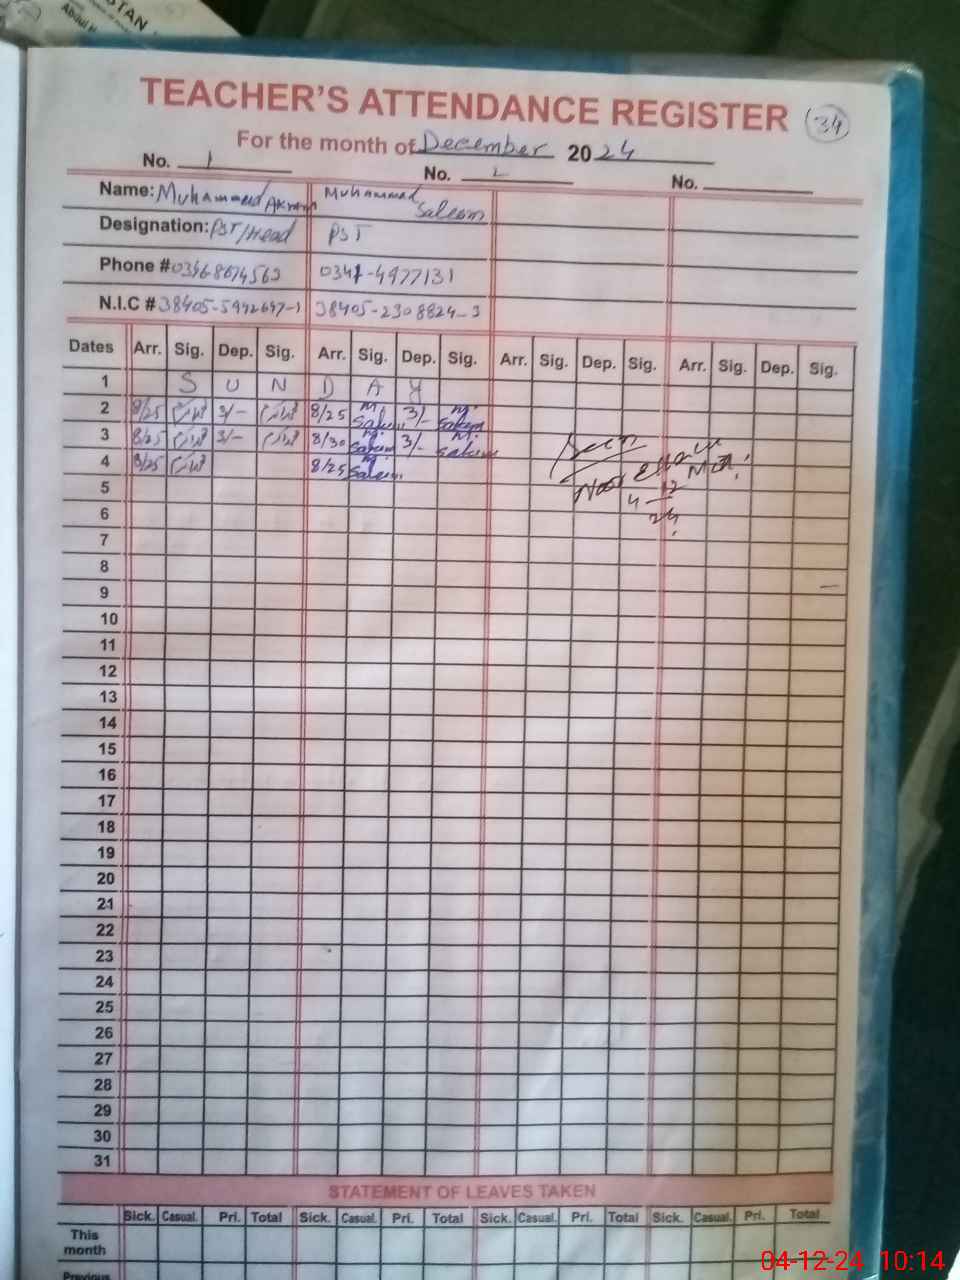 STAN
Abdul H
TEACHER'S ATTENDANCE REGISTER
34
For the month of December 2024
No. 1 No. 2 No.
Name: Muhammad Akram Muhammad Saleem
Designation: PST/Head PST
Phone # 03468674563 0341-4977131
N.I.C # 38405-5992697-1 38405-2308824-3
Dates Arr. Sig. Dep. Sig. Arr. Sig. Dep. Sig. Arr. Sig. Dep. Sig. Arr. Sig. Dep. Sig.
1 S U N D A Y
2 8/25 3/- 8/25 M. Saleem 3/- M. Saleem
3 8/25 3/- 8/30 M. Saleem 3/- M. Saleem
4 8/25 8/25 M. Saleem
Seen
4 12
24
5
6
7
8
9
10
11
12
13
14
15
16
17
18
19
20
21
22
23
24
25
26
27
28
29
30
31
STATEMENT OF LEAVES TAKEN
Sick. Casual. Pri. Total Sick. Casual. Pri. Total Sick. Casual. Pri. Total Sick. Casual. Pri. Total
This month
Previous
04-12-24 10:14